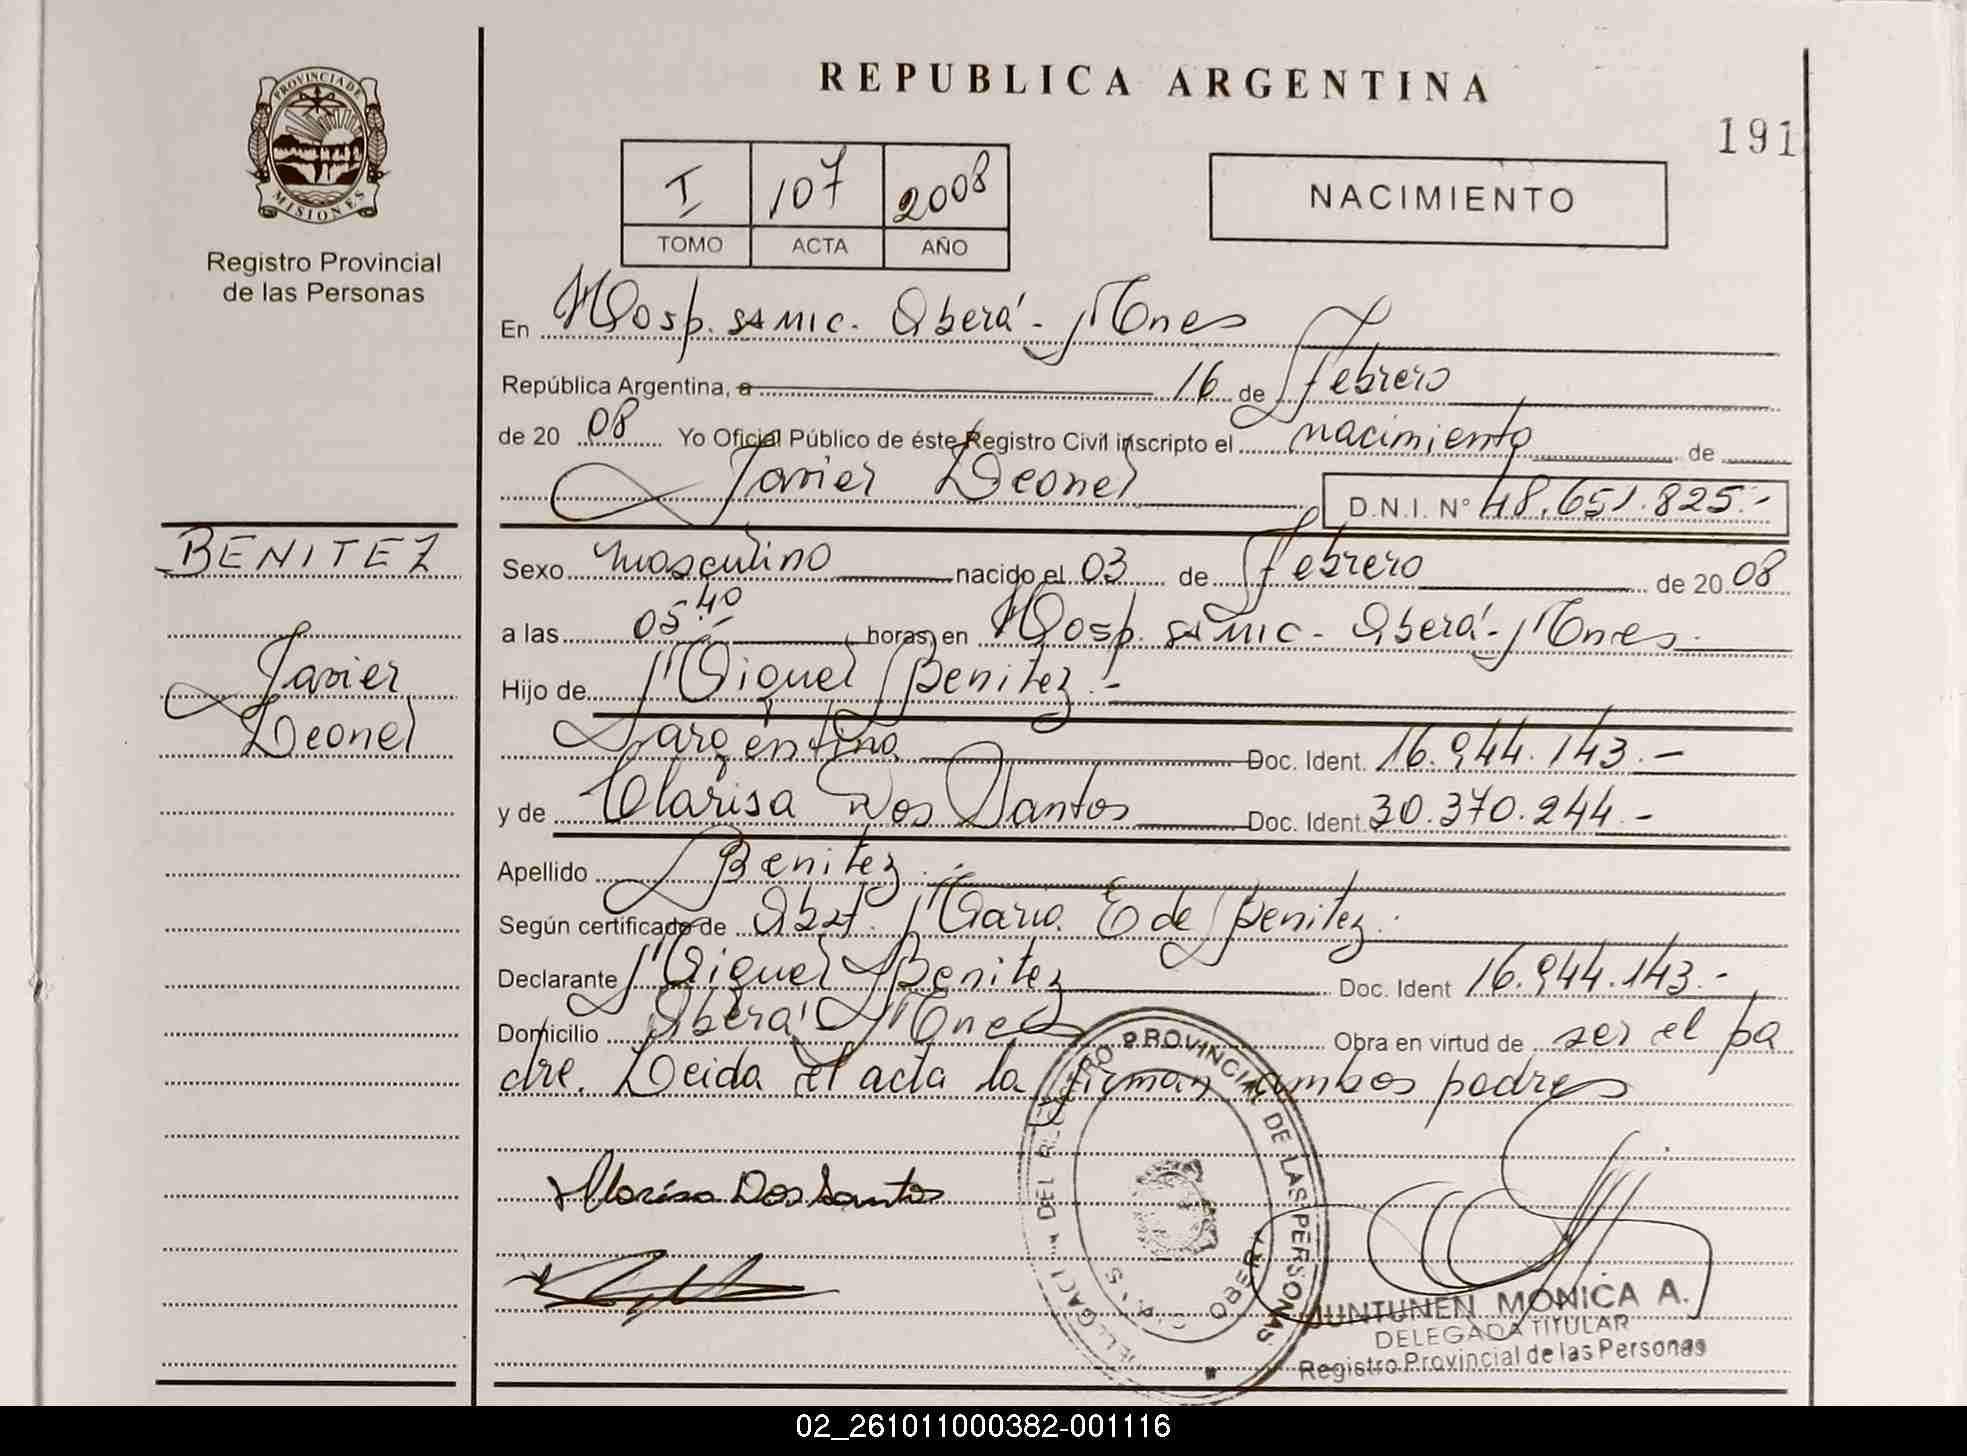 REPUBLICA ARGENTINA
191
PROVINCIA DE
MISIONES
Registro Provincial
de las Personas
I 107 2008
TOMO ACTA AÑO
NACIMIENTO
En Hosp. ssmic. Oberá - Mnes
República Argentina, a 16 de Febrero
de 20 08 Yo Oficial Público de éste Registro Civil inscripto el nacimiento de
Javier Leonel D.N.I. Nº 48.651.825.-
BENITEZ
Javier
Leonel
Sexo masculino nacido el 03 de Febrero de 20 08
a las 05.40 horas, en Hosp. ssmic - Oberá - Mnes.
Hijo de Miguel Benitez.-
argentino Doc. Ident. 16.944.143.-
y de Clarisa Dos Santos Doc. Ident. 30.370.244.-
Apellido Benitez.-
Según certificado de Obst. Maria E de Benitez.
Declarante Miguel Benitez Doc. Ident 16.944.143.-
Domicilio Oberá Mnes Obra en virtud de ser el pa
dre. Leida el acta la firman ambos padres
Clarisa Dos Santos
REGISTRO PROVINCIAL DE LAS PERSONAS
OBERA
JUNTUNEN MONICA A.
DELEGADA TITULAR
Registro Provincial de las Personas
02_261011000382-001116